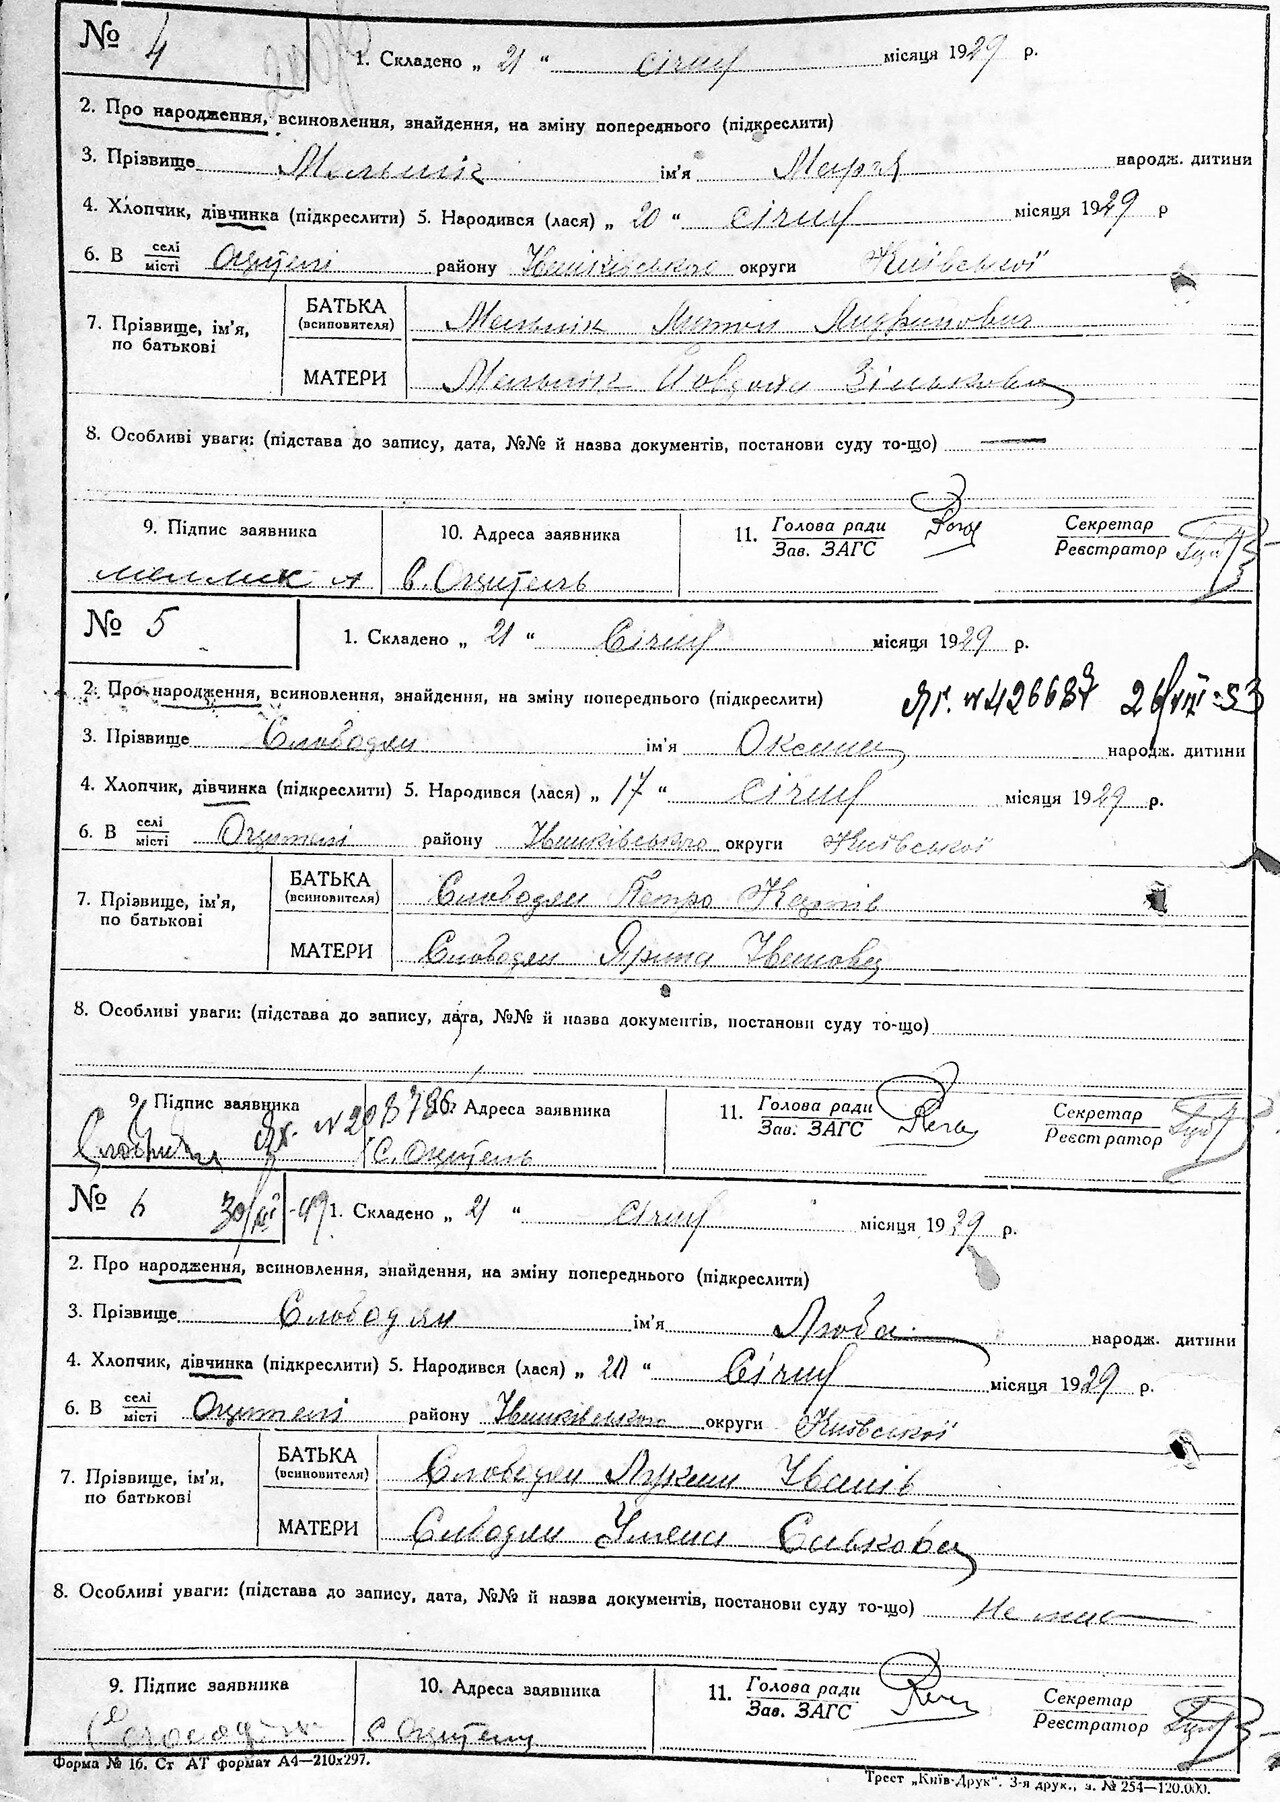 № 4
1. Складено „ 21 “ січня місяця 1929 р.
2. Про народження, всиновлення, знайдення, на зміну попереднього (підкреслити)
3. Прізвище Мельнік ім'я Марія народж. дитини
4. Хлопчик, дівчинка (підкреслити) 5. Народився (лася) „ 20 “ січня місяця 1929 р
6. В селі/місті Оцителі району Іванківського округи Київської
7. Прізвище, ім'я, по батькові
БАТЬКА (всиновителя) Мельнік Антон
МАТЕРИ Мельнік Йовдоха Зінькова
8. Особливі уваги: (підстава до запису, дата, №№ й назва документів, постанови суду то-що) —
9. Підпис заявника
10. Адреса заявника
11. Голова ради / Зав. ЗАГС
Секретар / Реєстратор
с. Оцитель
№ 5
1. Складено „ 21 “ Січня місяця 1929 р.
2. Про народження, всиновлення, знайдення, на зміну попереднього (підкреслити)
№ 426687 26/VIII-53
3. Прізвище Слободян ім'я Оксана народж. дитини
4. Хлопчик, дівчинка (підкреслити) 5. Народився (лася) „ 17 “ січня місяця 1929 р.
6. В селі/місті Оцителі району Іванківського округи Київської
7. Прізвище, ім'я, по батькові
БАТЬКА (всиновителя) Слободян Петро
МАТЕРИ Слободян Ярина Іванова
8. Особливі уваги: (підстава до запису, дата, №№ й назва документів, постанови суду то-що)
9. Підпис заявника
10. Адреса заявника
11. Голова ради / Зав. ЗАГС
Секретар / Реєстратор
с. Оцитель
№ 6
1. Складено „ 21 “ січня місяця 1929 р.
2. Про народження, всиновлення, знайдення, на зміну попереднього (підкреслити)
3. Прізвище Слободян ім'я Люба народж. дитини
4. Хлопчик, дівчинка (підкреслити) 5. Народився (лася) „ 20 “ Січня місяця 1929 р.
6. В селі/місті Оцителі району Іванківського округи Київської
7. Прізвище, ім'я, по батькові
БАТЬКА (всиновителя) Слободян Лукаш Іванів
МАТЕРИ Слободян Уляна Савкова
8. Особливі уваги: (підстава до запису, дата, №№ й назва документів, постанови суду то-що) Не має
9. Підпис заявника
10. Адреса заявника
11. Голова ради / Зав. ЗАГС
Секретар / Реєстратор
с Оцитель
Форма № 16. Ст АТ формат А4—210х297.
Трест „Київ-Друк“. 3-я друк., з. № 254—120.000.